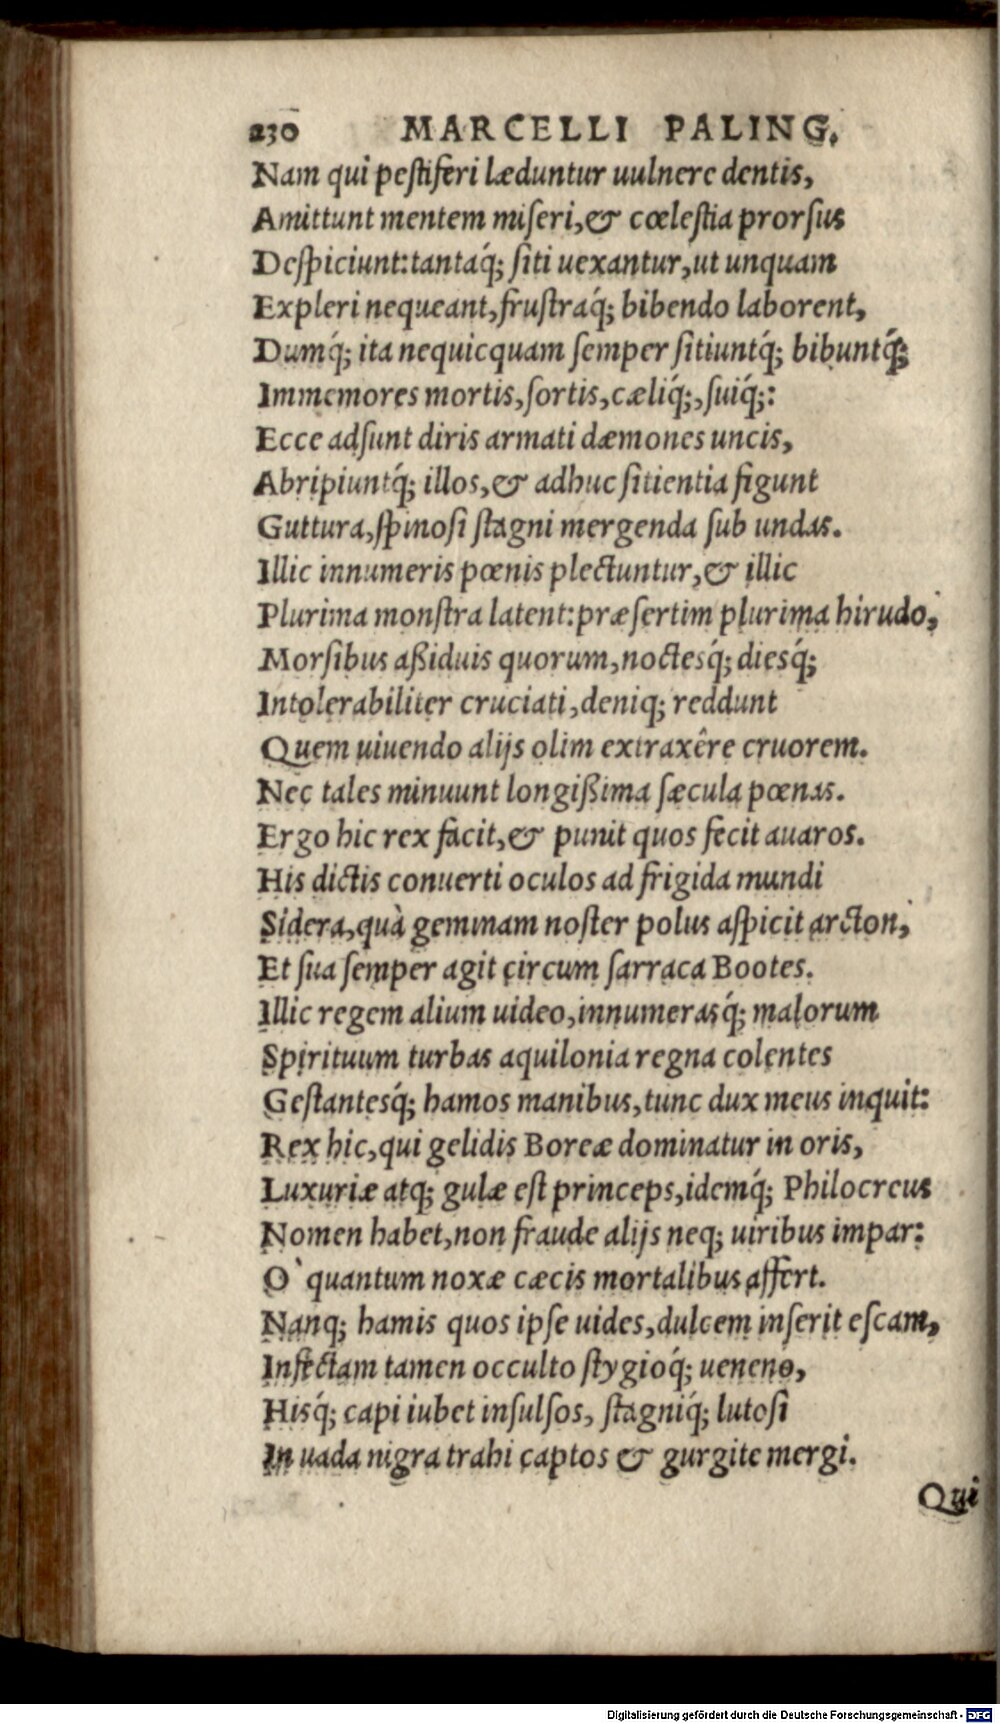 230 MARCELLI PALING.
Nam qui pestiferi læduntur uulnere dentis,
Amittunt mentem miseri,& cœlestia prorsus
Despiciunt:tantaq́; siti uexantur,ut unquam
Expleri nequeant,frustraq́; bibendo laborent,
Dumq́; ita nequicquam semper sitiuntq́; bibuntq́;
Immemores mortis,sortis,cæliq́;,suiq́;:
Ecce adsunt diris armati dæmones uncis,
Abripiuntq́; illos,& adhuc sitientia figunt
Guttura,spinosi stagni mergenda sub undas.
Illic innumeris pœnis plectuntur,& illic
Plurima monstra latent:præsertim plurima hirudo,
Morsibus aßiduis quorum,noctesq́; diesq́;
Intolerabiliter cruciati,deniq; reddunt
Quem uiuendo alijs olim extraxêre cruorem.
Nec tales minuunt longißima sæcula pœnas.
Ergo hic rex facit,& punit quos fecit auaros.
His dictis conuerti oculos ad frigida mundi
Sidera,quà geminam noster polus aspicit arcton,
Et sua semper agit circum sarraca Bootes.
Illic regem alium uideo,innumerasq́; malorum
Spirituum turbas aquilonia regna colentes
Gestantesq́; hamos manibus,tunc dux meus inquit:
Rex hic,qui gelidis Boreæ dominatur in oris,
Luxuriæ atq; gulæ est princeps,idemq́; Philocreus
Nomen habet,non fraude alijs neq; uiribus impar:
O` quantum noxæ cæcis mortalibus affert.
Nanq; hamis quos ipse uides,dulcem inserit escam,
Infectam tamen occulto stygioq́; ueneno,
Hisq́; capi iubet insulsos, stagniq́; lutosi
In uada nigra trahi captos & gurgite mergi.
Qui
Digitalisierung gefördert durch die Deutsche Forschungsgemeinschaft - DFG